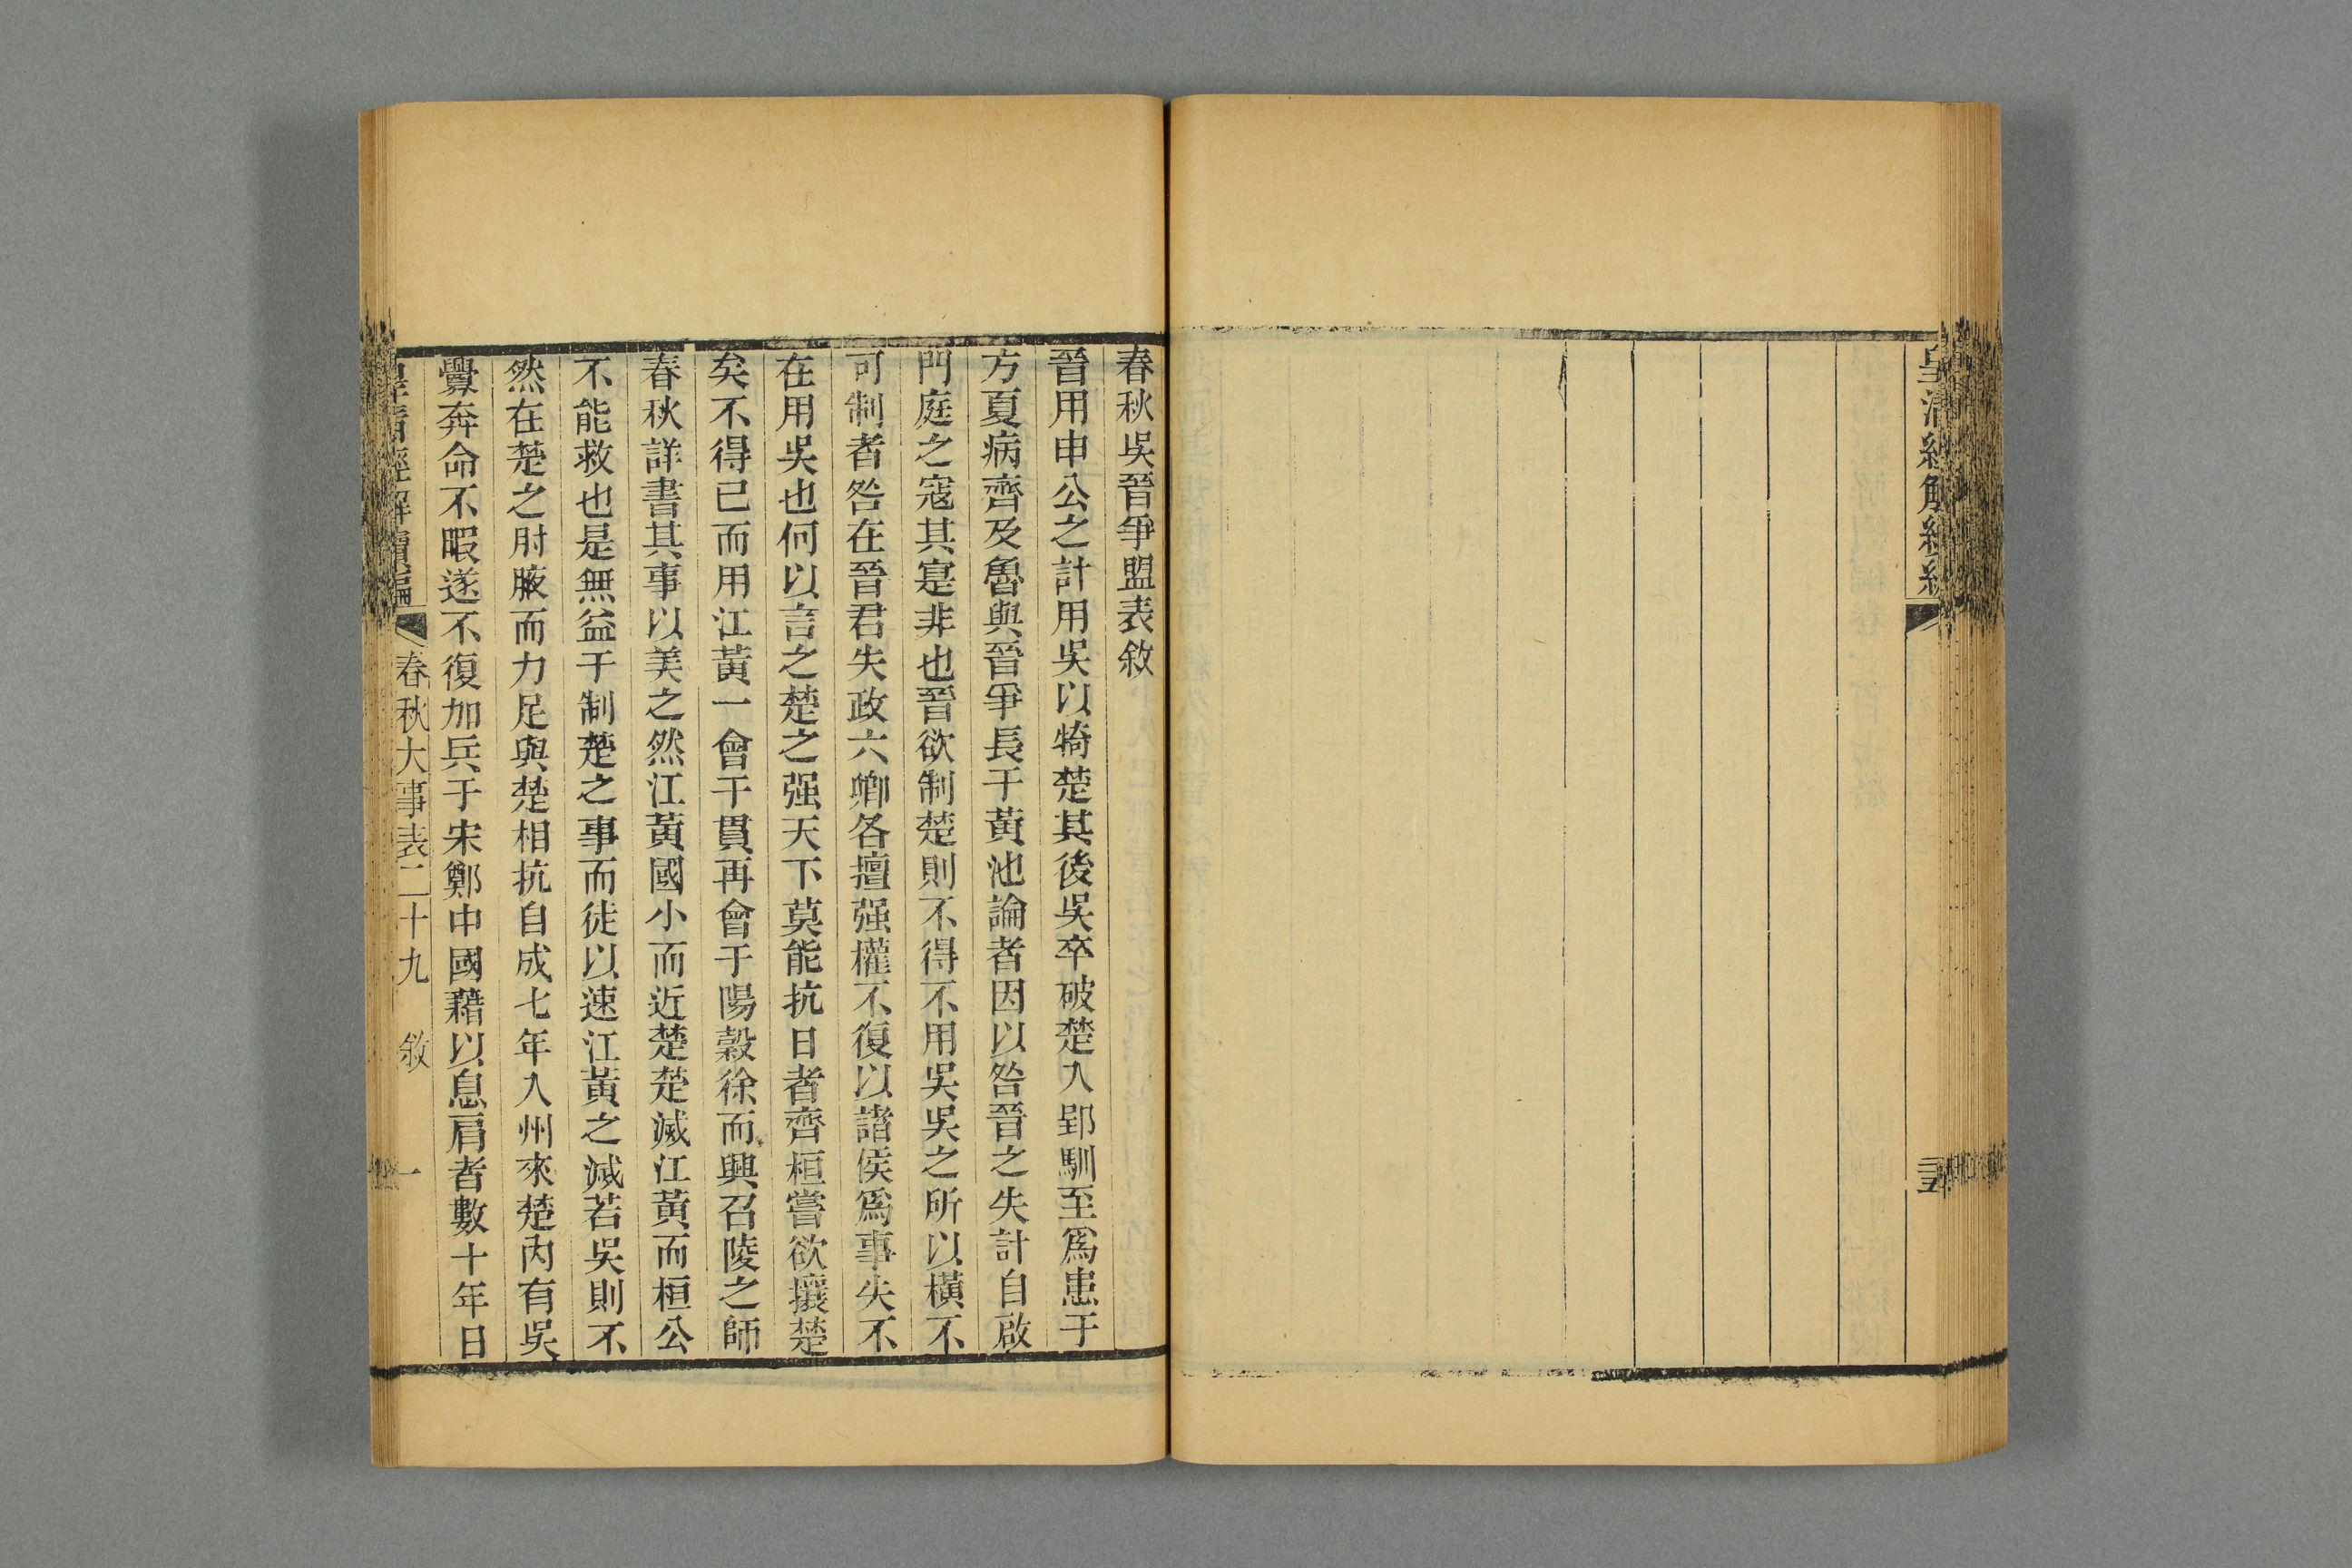 春秋吳晉爭盟表敘
晉用申公之計用吳以犄楚其後吳卒破楚入郢馴至爲患于
方夏病齊及魯與晉爭長于黃池論者因以咎晉之失計自啟
門庭之寇其寔非也晉欲制楚則不得不用吳吳之所以橫不
可制者咎在晉君失政六卿各擅强權不復以諸侯爲事失不
在用吳也何以言之楚之强天下莫能抗日者齊桓嘗欲攘楚
矣不得已而用江黃一會于貫再會于陽穀徐而興召陵之師
春秋詳書其事以美之然江黃國小而近楚楚滅江黃而桓公
不能救也是無益于制楚之事而徒以速江黃之滅若吳則不
然在楚之肘腋而力足與楚相抗自成七年入州來楚內有吳
釁奔命不暇遂不復加兵于宋鄭中國藉以息肩者數十年日
皇清經解續編 春秋大事表二十九 敘 一